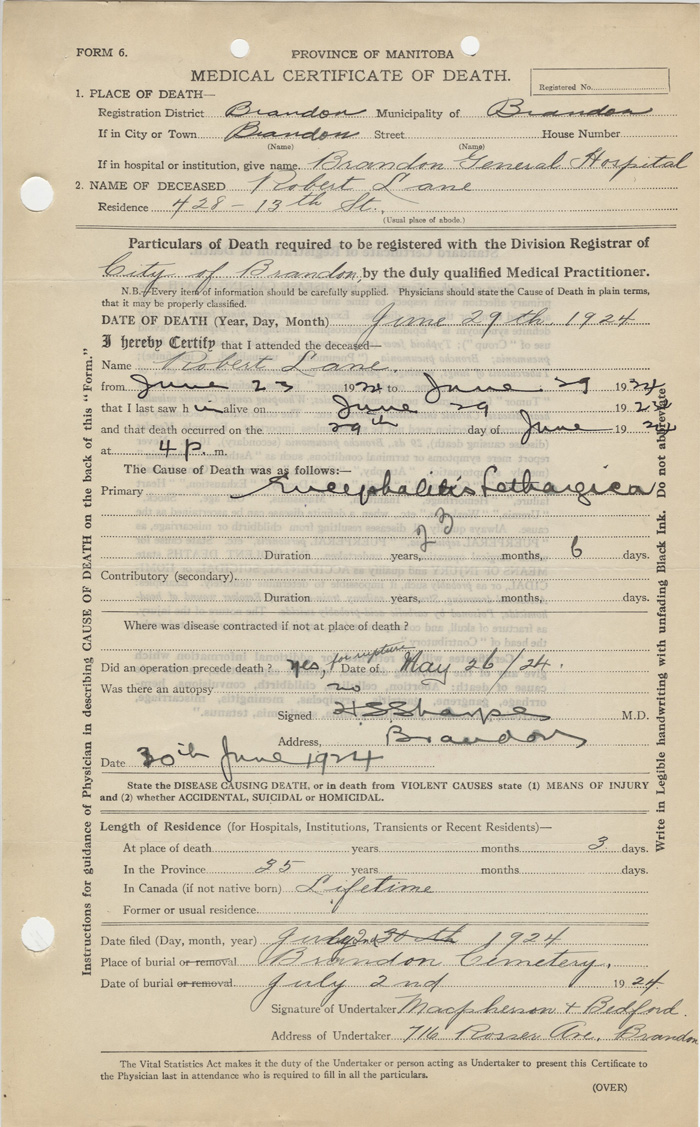 FORM 6.
PROVINCE OF MANITOBA
MEDICAL CERTIFICATE OF DEATH.
Registered No.
1. PLACE OF DEATH—
Registration District Brandon Municipality of Brandon
If in City or Town Brandon Street House Number
(Name) (Name)
If in hospital or institution, give name. Brandon General Hospital
2. NAME OF DECEASED Robert Lane
Residence 428 - 13th St.,
(Usual place of abode.)
Particulars of Death required to be registered with the Division Registrar of
City of Brandon, by the duly qualified Medical Practitioner.
N.B.—Every item of information should be carefully supplied. Physicians should state the Cause of Death in plain terms,
that it may be properly classified.
DATE OF DEATH (Year, Day, Month) June 29th, 1924
I hereby Certify that I attended the deceased—
Name Robert Lane.
from June 23 1924 to June 29 1924
that I last saw him alive on June 29 19
and that death occurred on the 29th day of June 19
at 4 p. m.
The Cause of Death was as follows:—
Primary Encephalitis Lethargica
23
Duration years, months, 6 days.
Contributory (secondary).
Duration years, months, days.
Where was disease contracted if not at place of death ?
Did an operation precede death ? yes, for rupture Date of May 26/24.
Was there an autopsy no
Signed H S Sharpe M.D.
Address, Brandon
Date 30th June 1924
State the DISEASE CAUSING DEATH, or in death from VIOLENT CAUSES state (1) MEANS OF INJURY
and (2) whether ACCIDENTAL, SUICIDAL or HOMICIDAL.
Length of Residence (for Hospitals, Institutions, Transients or Recent Residents)—
At place of death years months 3 days.
In the Province 35 years months days
In Canada (if not native born) Lifetime
Former or usual residence.
Date filed (Day, month, year) July 2nd 1924
Place of burial or removal Brandon Cemetery.
Date of burial or removal July 2nd 1924
Signature of Undertaker Macpherson & Bedford.
Address of Undertaker 716 Rosser Ave, Brandon
The Vital Statistics Act makes it the duty of the Undertaker or person acting as Undertaker to present this Certificate to
the Physician last in attendance who is required to fill in all the particulars.
(OVER)
Instructions for guidance of Physician in describing CAUSE OF DEATH on the back of this "Form."
Write in Legible handwriting with unfading Black Ink. Do not abbreviate